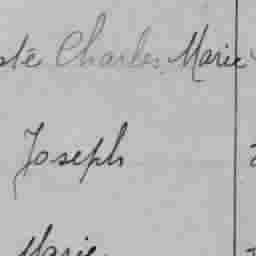 Charles Marie
Joseph
Marie